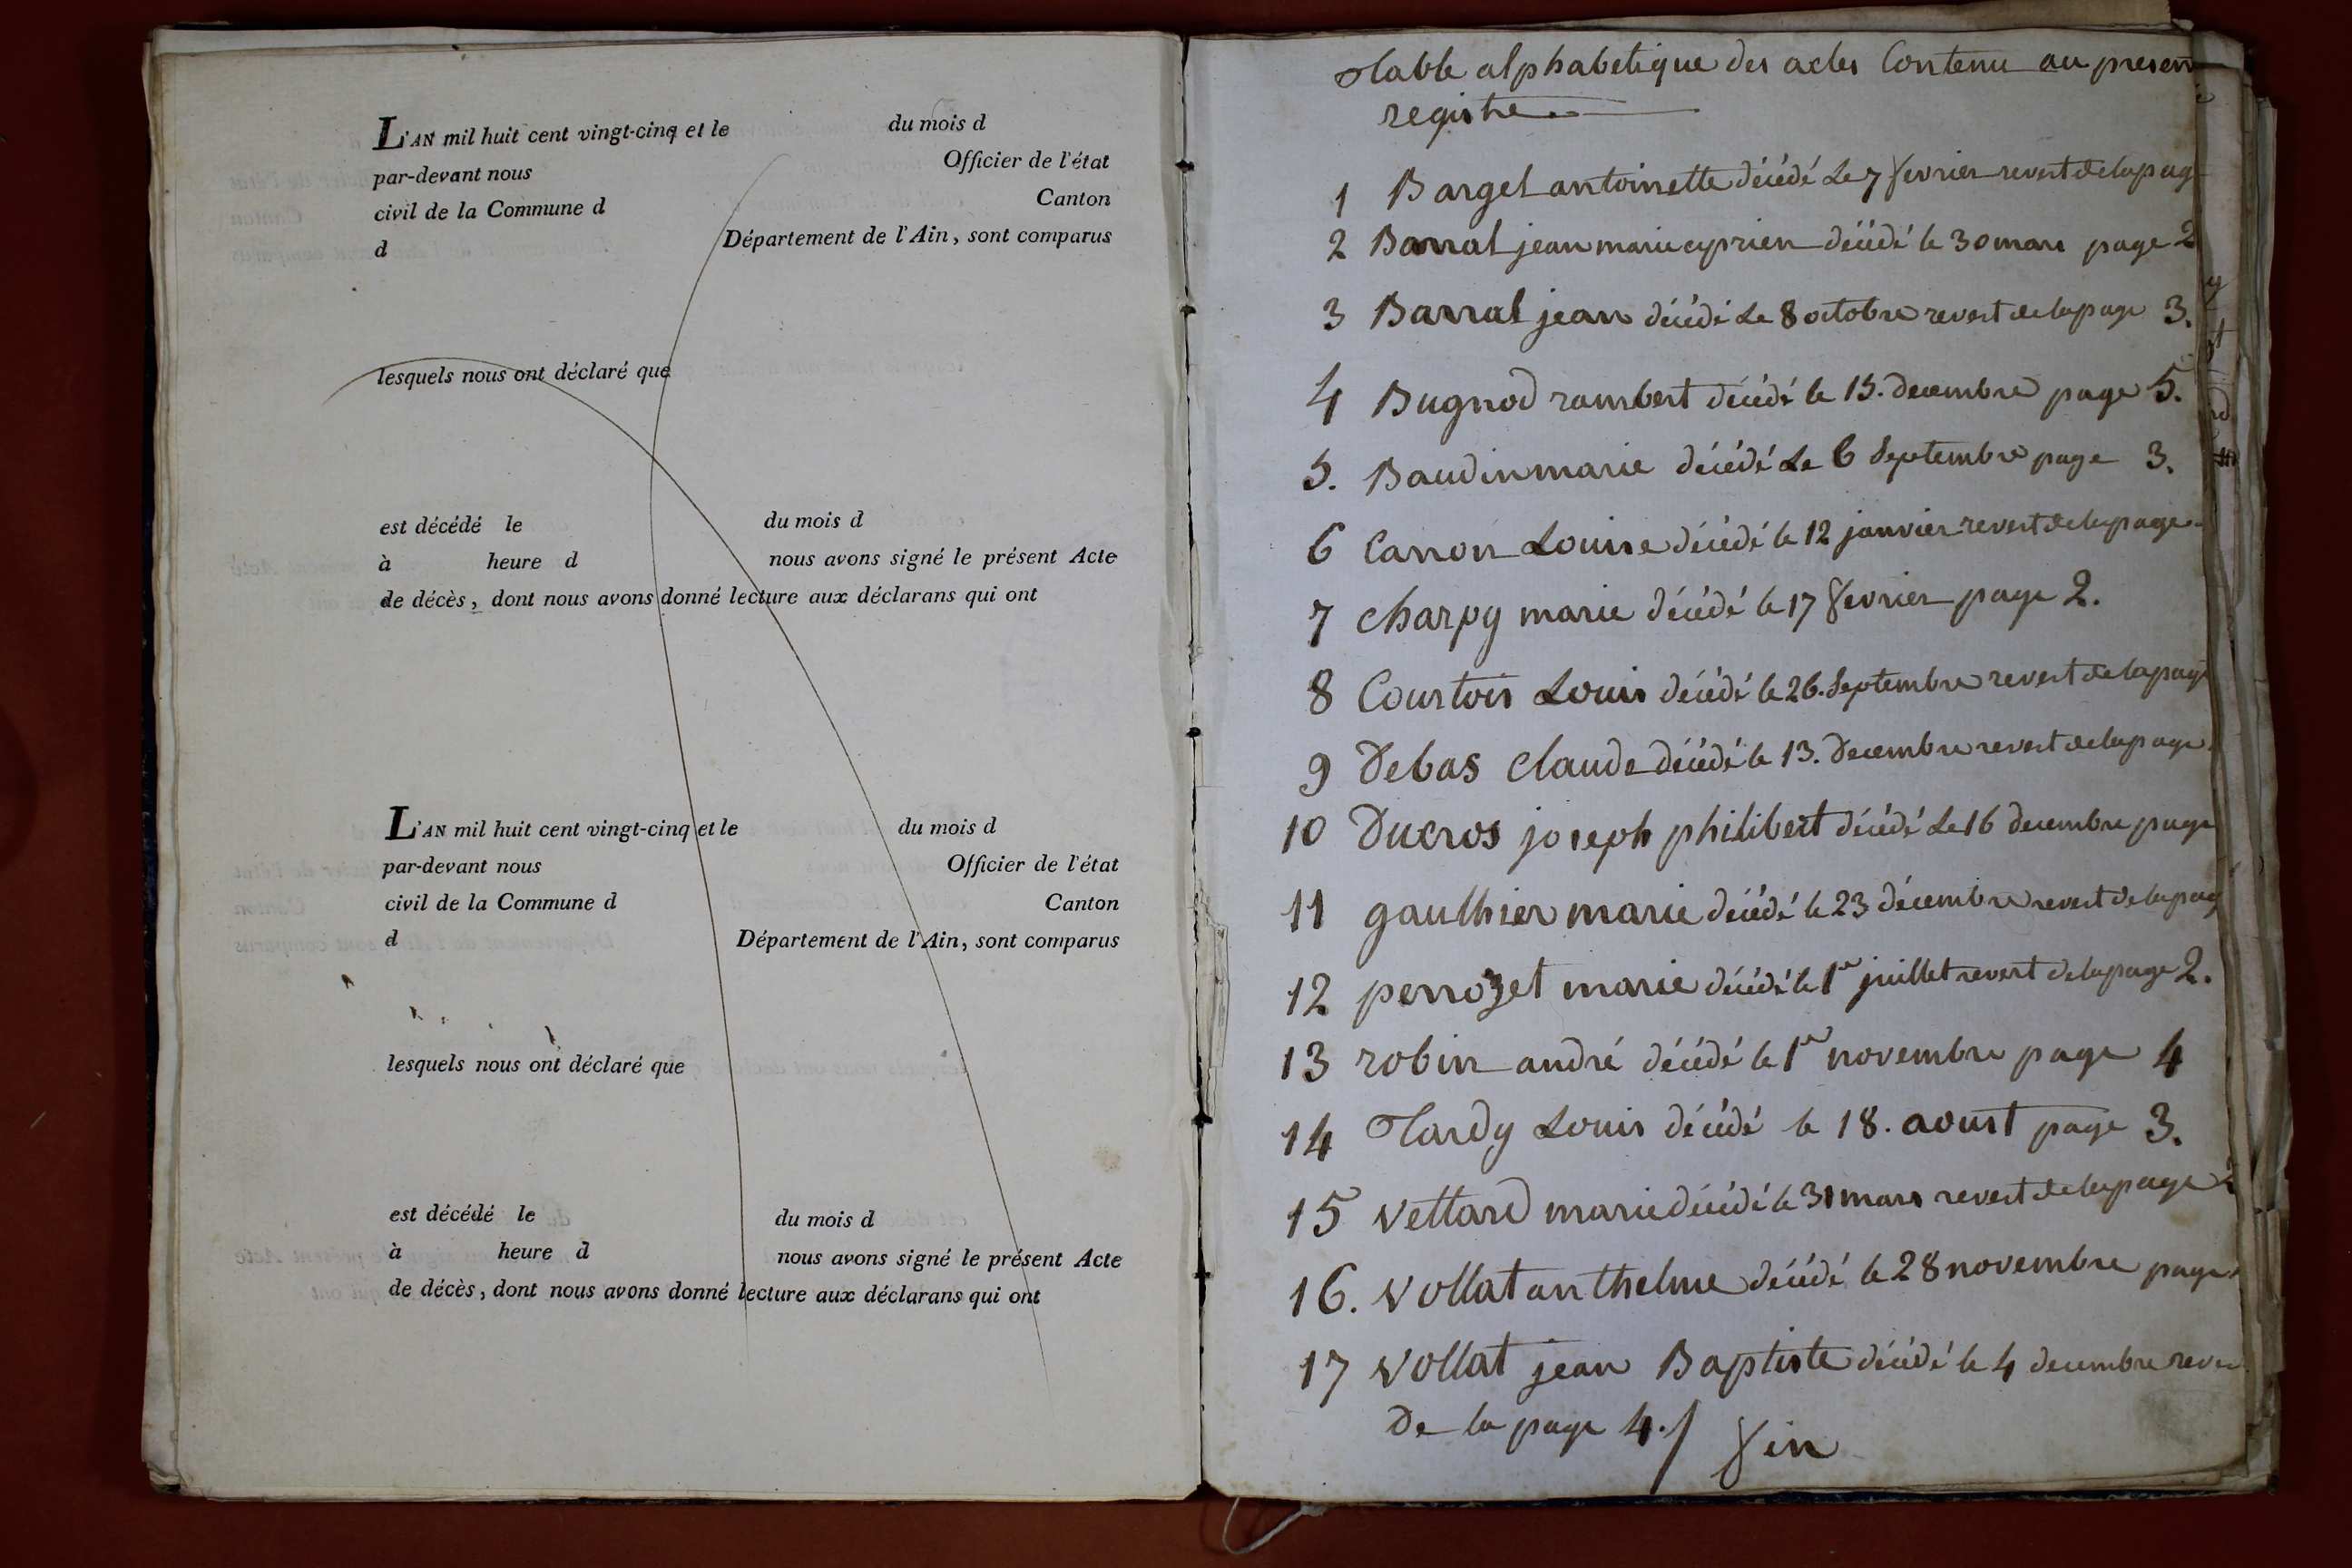 L'AN mil huit cent vingt-cinq et le du mois d
par-devant nous Officier de l'état
civil de la Commune d Canton
d Département de l'Ain, sont comparus
lesquels nous ont déclaré que
est décédé le du mois d
à heure d nous avons signé le présent Acte
de décès, dont nous avons donné lecture aux déclarans qui ont
L'AN mil huit cent vingt-cinq et le du mois d
par-devant nous Officier de l'état
civil de la Commune d Canton
d Département de l'Ain, sont comparus
lesquels nous ont déclaré que
est décédé le du mois d
à heure d nous avons signé le présent Acte
de décès, dont nous avons donné lecture aux déclarans qui ont
Table alphabetique des actes Contenu au presen
registre
1 Barget antoinette décédé Le 7 fevrier revert de la pag
2 Barral jean marie cyprien décédé le 30 mars page 2
3 Barral jean décédé Le 8 octobre revert de la page 3.
4 Bugnod rambert décédé le 15. decembre page 5.
5. Baudin marie décédé Le 6 Septembre page 3.
6 Canon Louise décédé le 12 janvier revert de la page
7 charpy marie décédé le 17 fevrier page 2.
8 Courtois Louis décédé le 26. Septembre revert de la page
9 Debas Claude décédé le 13. Decembre revert de la page
10 Ducros joseph philibert décédé Le 16 decembre page
11 gaulthier marie décédé le 23 décembre revert de la pag
12 perrozet marie décédé le 1er juillet revert de la page 2.
13 robin andré décédé le 1er novembre page 4
14 Tardy Louis décédé le 18. aoust page 3.
15 vettard marie décédé le 31 mars revert de la page 2
16. vollat anthelme décédé le 28 novembre page
17 vollat jean Baptiste décédé le 4 decembre rever
De la page 4./ fin